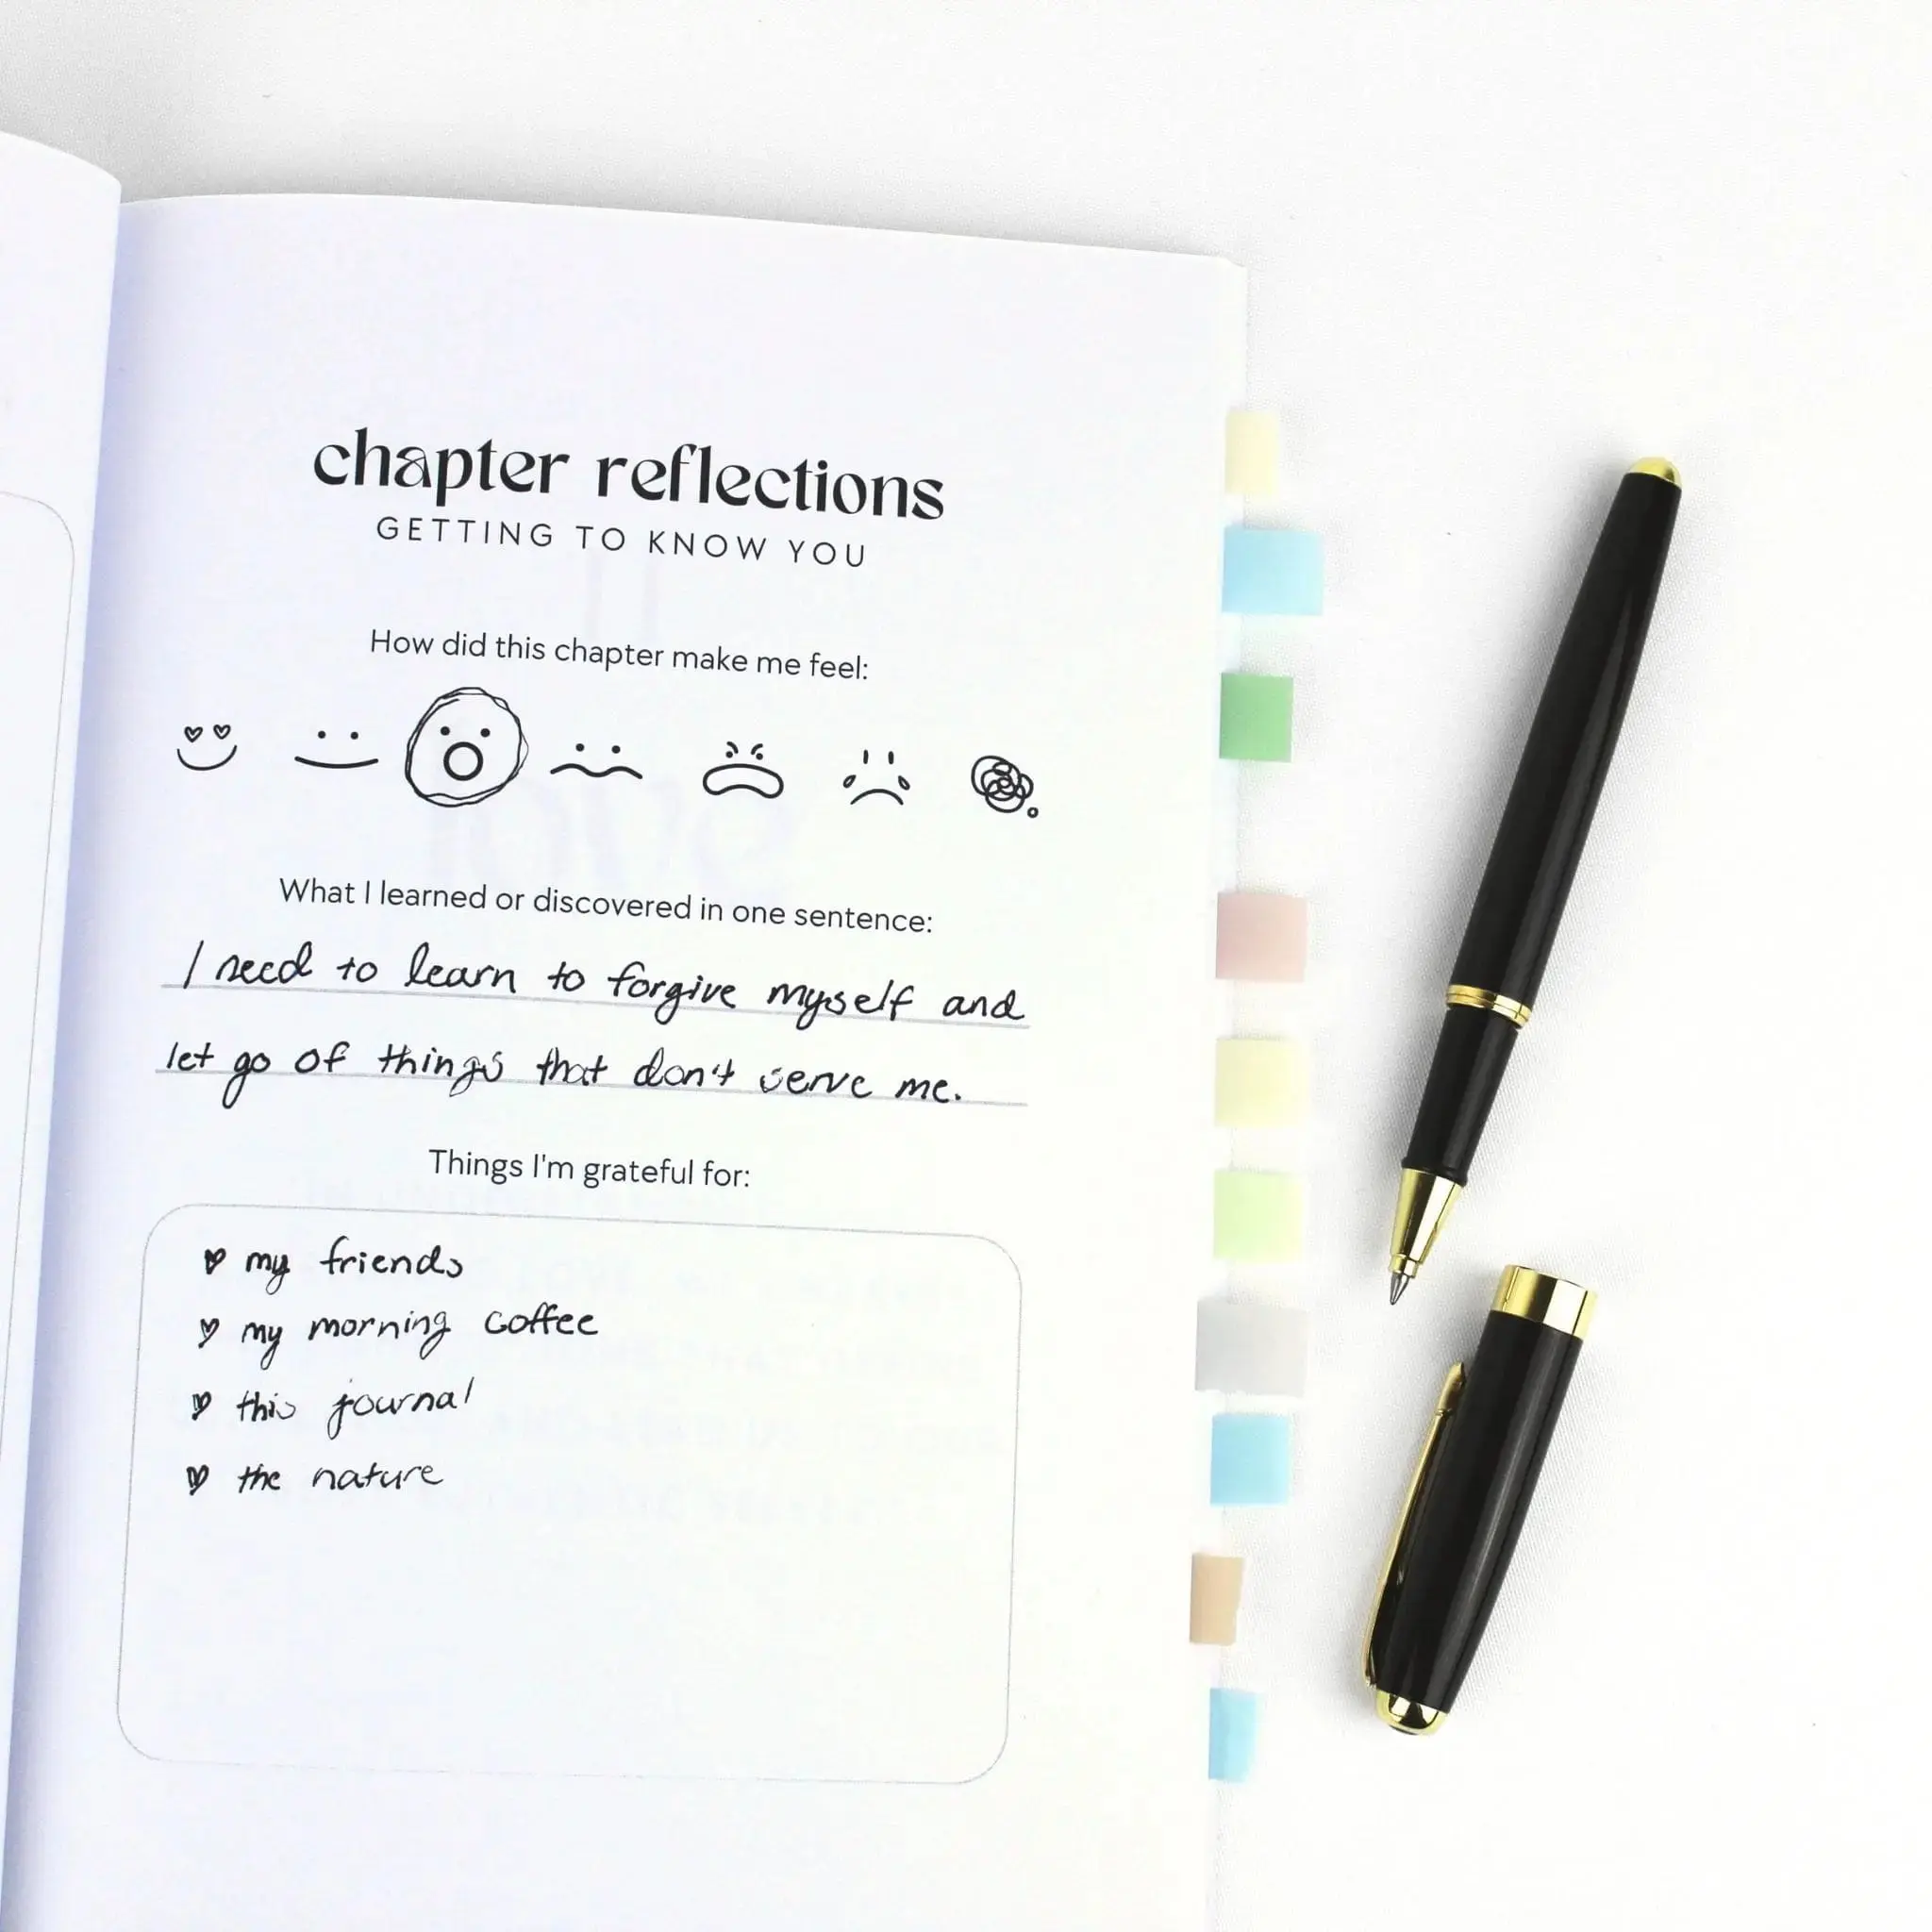 chapter reflections
GETTING TO KNOW YOU
How did this chapter make me feel:
What I learned or discovered in one sentence:
I need to learn to forgive myself and
let go of things that don't serve me.
Things I'm grateful for:
my friends
my morning coffee
this journal
the nature